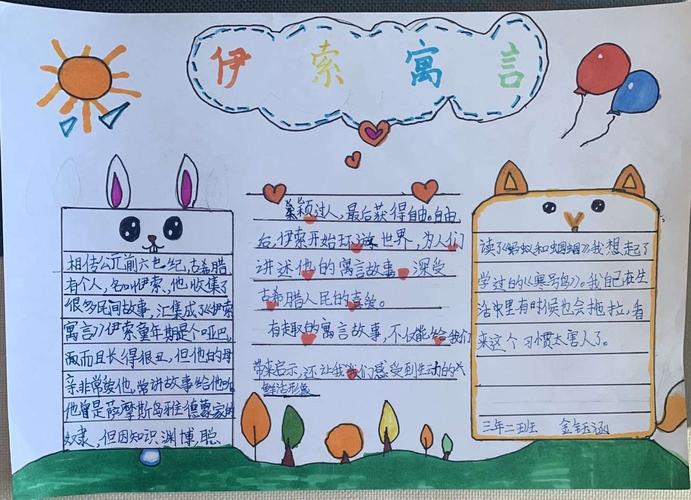 伊索寓言
相传公元前六世纪,古希腊
有个人,名叫伊索,他收集了
很多民间故事,汇集成了《伊索
寓言》伊索童年期是个哑巴,
而且长得很丑,但他的母
亲非常疼他,常讲故事给他听
他曾是萨摩斯岛雅德蒙家的
奴隶,但因知识渊博,聪
颖过人,最后获得自由。自由
后,伊索开始环游世界,为人们
讲述他的寓言故事,深受
古希腊人民的喜爱。
有趣的寓言故事,不仅能给我们
带来启示,还让我们感受到生动的
鲜活形象
读了《蚂蚁和蝈蝈》我想起了
学过的《寒号鸟》。我自己在生
活里有时候也会拖拉,看
来这个习惯太害人了。
三年二班 金钰涵